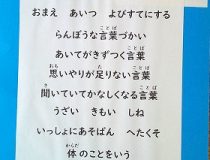 おまえ あいつ よびすてにする
らんぼうな言葉づかい
あいてがきずつく言葉
思いやりが足りない言葉
聞いていてかなしくなる言葉
うざい きもい しね
いっしょにあそばん へたくそ
体のことをいう